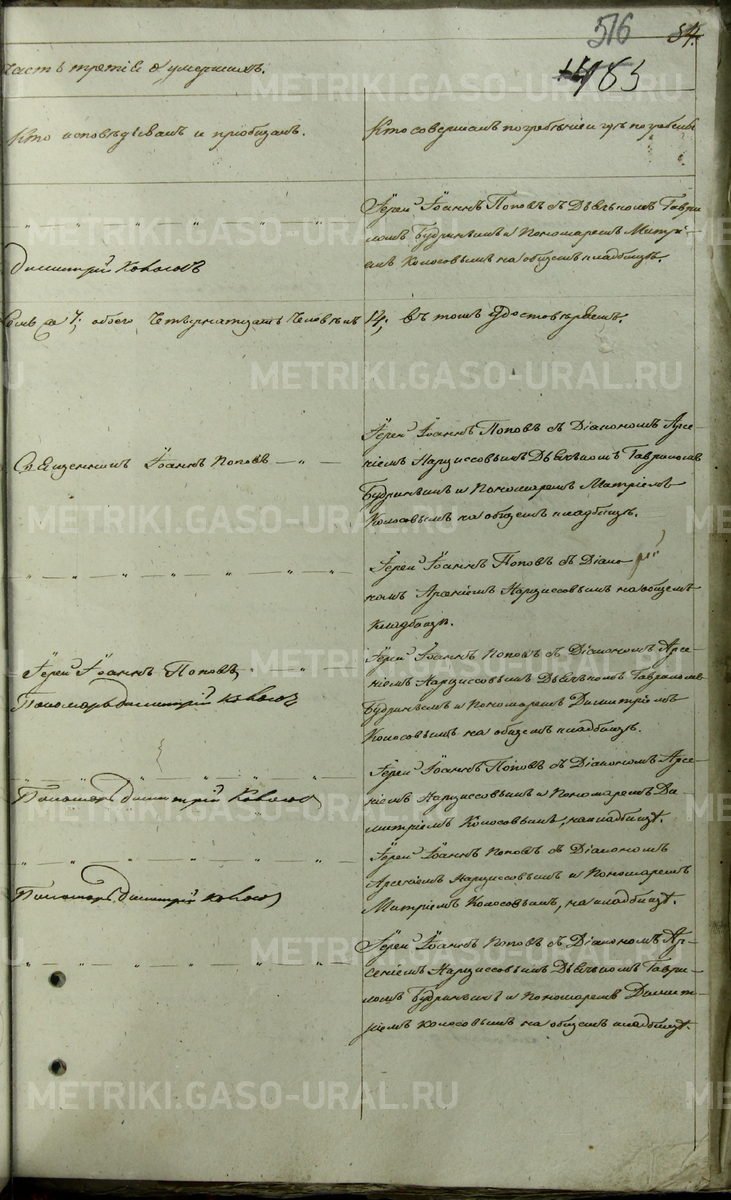 516
54.
183
Часть третiя о умершихъ.
Кто исповѣдывалъ и прiобщалъ.
Кто совершалъ погребенiе и гдѣ погребены
Iерей Iоаннъ Поповъ съ Дьячкомъ Гаври-
ломъ Будринымъ и Пономаремъ Митрi-
емъ Колосовымъ на общемъ кладбищѣ.
Димитрiй Колосовъ
7; обоего Четырнатцать Человѣкъ 14; въ томъ удостовѣряемъ.
Священникъ Iоаннъ Поповъ
Iерей Iоаннъ Поповъ съ Дiакономъ Арсе-
нiемъ Нарциссовымъ Дьячкомъ Гавриломъ
Будринымъ и Пономаремъ Митрiемъ
Колосовымъ на общемъ кладбищѣ.
Iерей Iоаннъ Поповъ съ Дiако-
номъ Арсенiемъ Нарциссовымъ на общемъ
кладбищѣ.
Iерей Iоаннъ Поповъ
Пономарь Димитрiй Колосов
Iерей Iоаннъ Поповъ съ Дiакономъ Арсе-
нiемъ Нарциссовымъ Дьячкомъ Гавриломъ
Будринымъ и Пономаремъ Димитрiемъ
Колосовымъ на общемъ кладбищѣ.
Пономарь Димитрiй Колосов
Iерей Iоаннъ Поповъ съ Дiакономъ Арсе-
нiемъ Нарциссовымъ и Пономаремъ Ди-
митрiемъ Колосовымъ, на кладбищѣ.
Пономарь Димитрiй Колосов
Iерей Iоаннъ Поповъ съ Дiакономъ
Арсенiемъ Нарциссовымъ и Пономаремъ
Митрiемъ Колосовымъ, на кладбищѣ.
Iерей Iоаннъ Поповъ съ Дiакономъ Ар-
сенiемъ Нарциссовымъ Дьячкомъ Гаври-
ломъ Будринымъ и Пономаремъ Димит-
рiемъ Колосовымъ на общемъ кладбищѣ.
METRIKI.GASO-URAL.RU